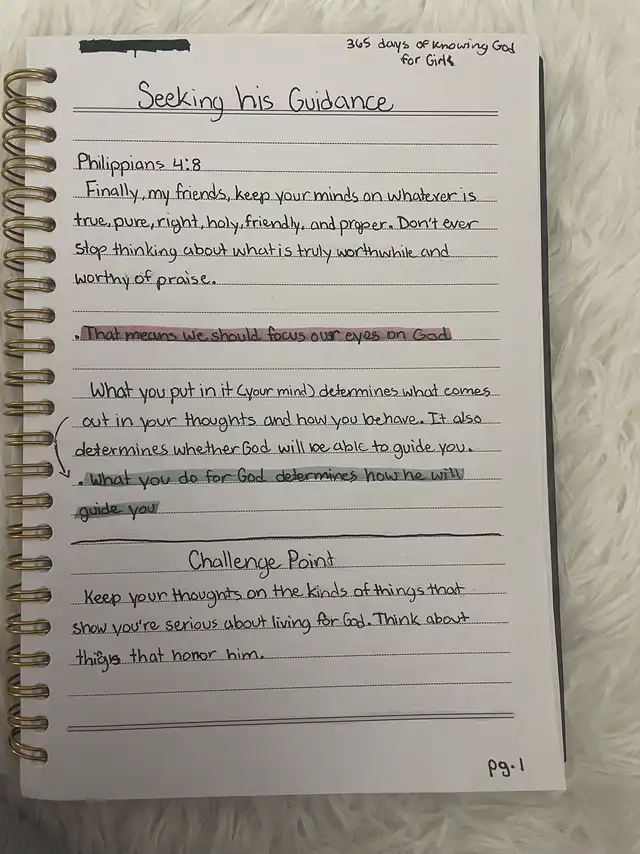 365 days of knowing God
for Girls
Seeking his Guidance
Philippians 4:8
Finally, my friends, keep your minds on whatever is
true, pure, right, holy, friendly, and proper. Don't ever
stop thinking about what is truly worthwhile and
worthy of praise.
. That means we should focus our eyes on God
What you put in it (your mind) determines what comes
out in your thoughts and how you behave. It also
determines whether God will be able to guide you.
. What you do for God determines how he will
guide you
Challenge Point
Keep your thoughts on the kinds of things that
show you're serious about living for God. Think about
things that honor him.
pg. 1